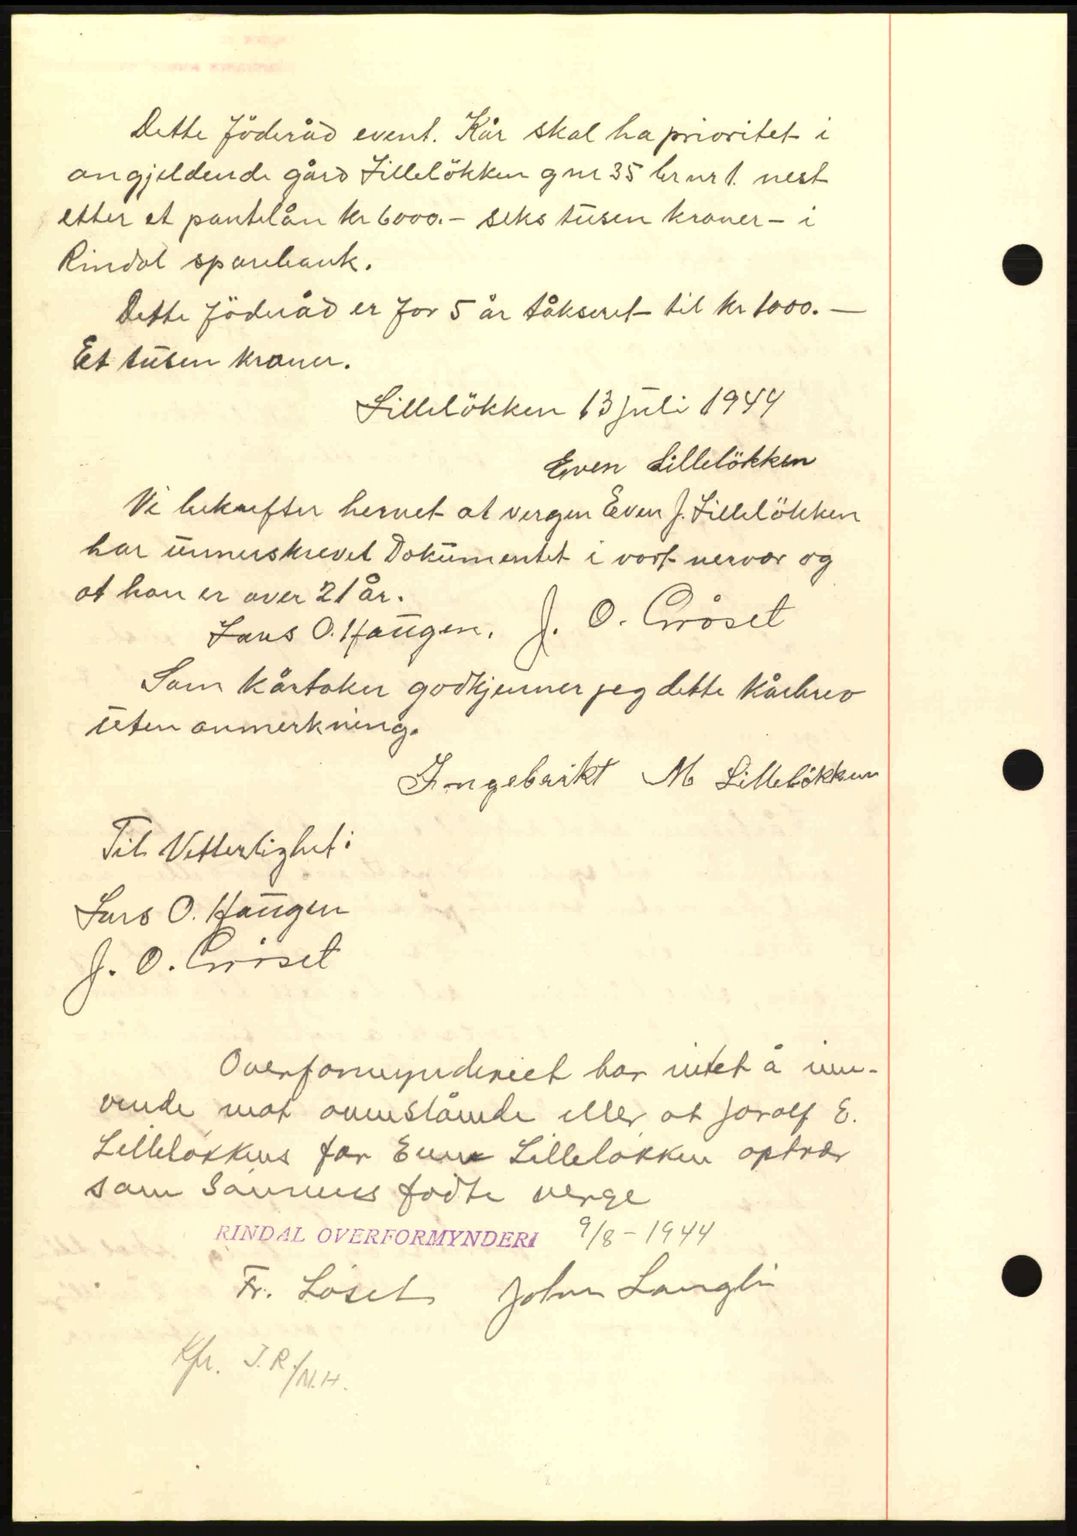 Dette föderåd event. Kår skal ha prioritet i
angjeldende gård Lilleløkken gnr 35 brnr 1. nest
etter et pantelån kr 6000.- seks tusen kroner - i
Rindal sparebank.
Dette föderåd er for 5 år tåkseret til kr 1000. —
Et tusen kroner.
Lillelökken 13 juli 1944
Even Lillelökken
Vi bekrefter hervet at vergen Even J. Lillelökken
har unnerskrevet Dokumentet i vort nervær og
at han er over 21 år.
Lars O. Haugen. J. O. Grøset
Som kårtaker godkjenner jeg dette kårbrev
uten anmerkning.
Ingebrikt M Lillelökken
Til Vitterlighet:
Lars O. Haugen
J. O. Grøset
Overformynderiet har intet å inn-
vende mot ovenstående eller at Joralf E.
Lilleløkkens far Even Lilleløkken optrær
som sønnens fødte verge
RINDAL OVERFORMYNDERI 9/8 - 1944
Fr. Løset John Langli
Kfr. J.R./N.H.